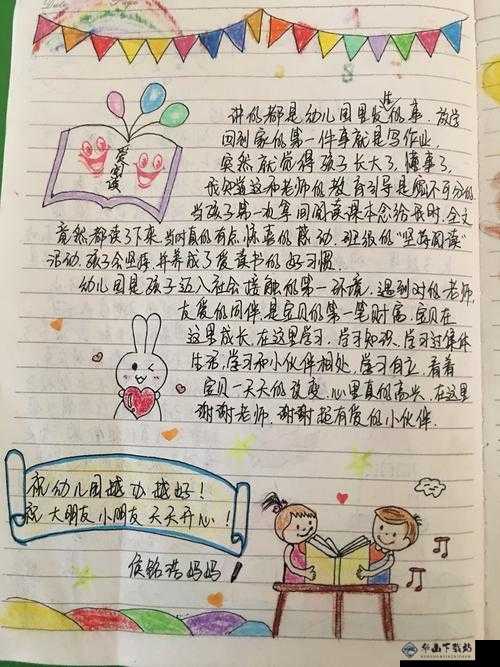 爱阅读
讲的都是幼儿园里发生的事，放学
回到家的第一件事就是写作业，
突然就觉得孩子长大了，懂事了，
我知道这和老师的教育引导是离不可分的，
当孩子第一次拿回阅读课本念给我时，全文
竟然都读了下来，当时真的有点惊喜的感动，班级的“坚持阅读”
活动，孩子会坚持并养成了爱读书的好习惯.
幼儿园是孩子迈入社会接触的第一环境，遇到对的老师，
友爱的同伴是宝贝的第一笔财富，宝贝在
这里成长，在这里学习，学习知识，学习过集体
生活，学习和小伙伴相处，学习自立，看着
宝贝一天天的改变，心里真的高兴，在这里
谢谢老师，谢谢超有爱的小伙伴.
祝幼儿园越办越好！
祝大朋友小朋友天天开心！
侯铭浩妈妈
华山下载站